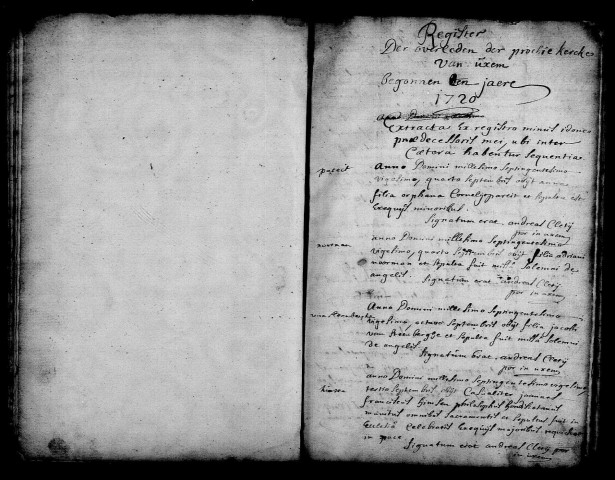 Register
Der overleden der prochie kercke
van uxem
Begonnen den jaere
1720
Extracta Ex registro minus idoneo
prædecessoris mei, ubi inter
Cætera habentur sequentia
Anno Domini millesimo Septingentesimo
vigesimo, quarta Septembris obijt anna
filia orphana Cornelij pareit et sepulta est
Exequijs minoribus.
Signatum erat andreas Clerij
por in uxem
noorman
anno Domini millesimo Septingentesimo
vigesimo, quarta Septembris obijt filia adriani
noorman et sepulta fuit missa solemni de
angelis. Signatum erat andreas Clerij
por in uxem
Anno Domini millesimo Septingentesimo
vigesimo, octava Septembris obijt filia jacobi
van steenberghe et sepulta fuit missa solemni
de angelis.
Signatum Erat andreas Clerij
por in uxem
anno Domini millesimo Septingentesimo vigesimo,
tertia Septembris obijt
francisci philosophus
munitus omnibus Sacramentis et sepultus fuit in
Ecclesia celebratis Exequijs majoribus requiescat
in pace
Signatum erat andreas Clerij por
in uxem